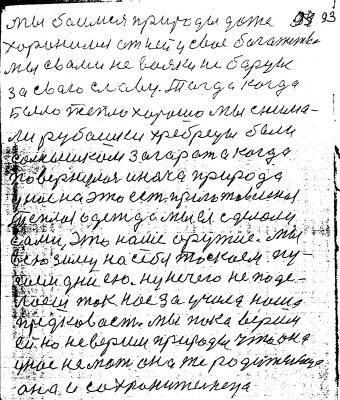 мы боимся природы даже 93
хоронимся от ней у свое богатство
мы с вами не вояки не борцы
за сваю славу. Тагда когда
было тепло хорошо мы снима-
ли рубашки хребты были
солнышком загарата когда
повернулся иначе природа
у нас на это ест. пригьтовленая
теплая одежда. мы ея сделали
сами, это наше оружие. мы
всю зиму на себя таскаем ку-
таем дни ею. ну нечего не поде-
лаеш так нас заучила наша
предковаст. мы пока верим
ей но не верим природы что она
у нас не мат она же родительница
она и сохранительнеца